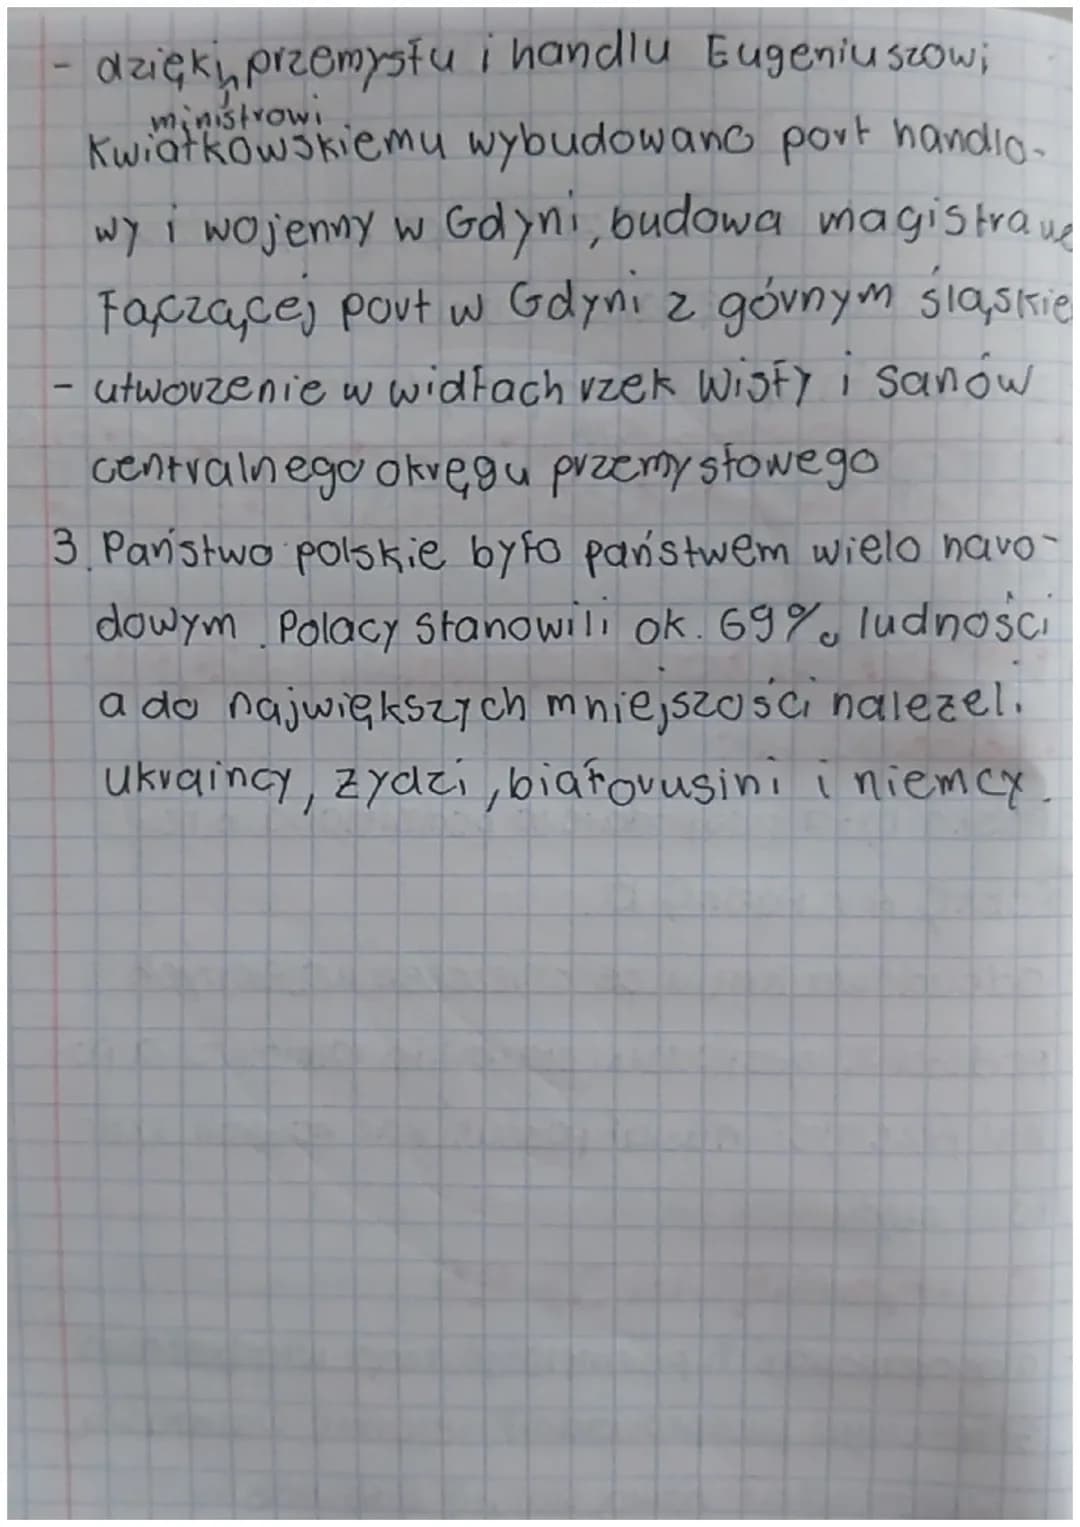 - dzięki przemysłu i handlu Eugeniuszowi
ministrowi
Kwiatkowskiemu wybudowano port handlo-
wy i wojenny w Gdyni, budowa magistrale
łączącej port w Gdyni z górnym śląskie
- utworzenie w widłach rzek Wisły i Sanów
centralnego okręgu przemysłowego
3. Państwo polskie było państwem wielo naro-
dowym. Polacy stanowili ok. 69% ludności
a do największych mniejszości nalezeli
Ukraincy, zydzi, białorusini i niemcy.